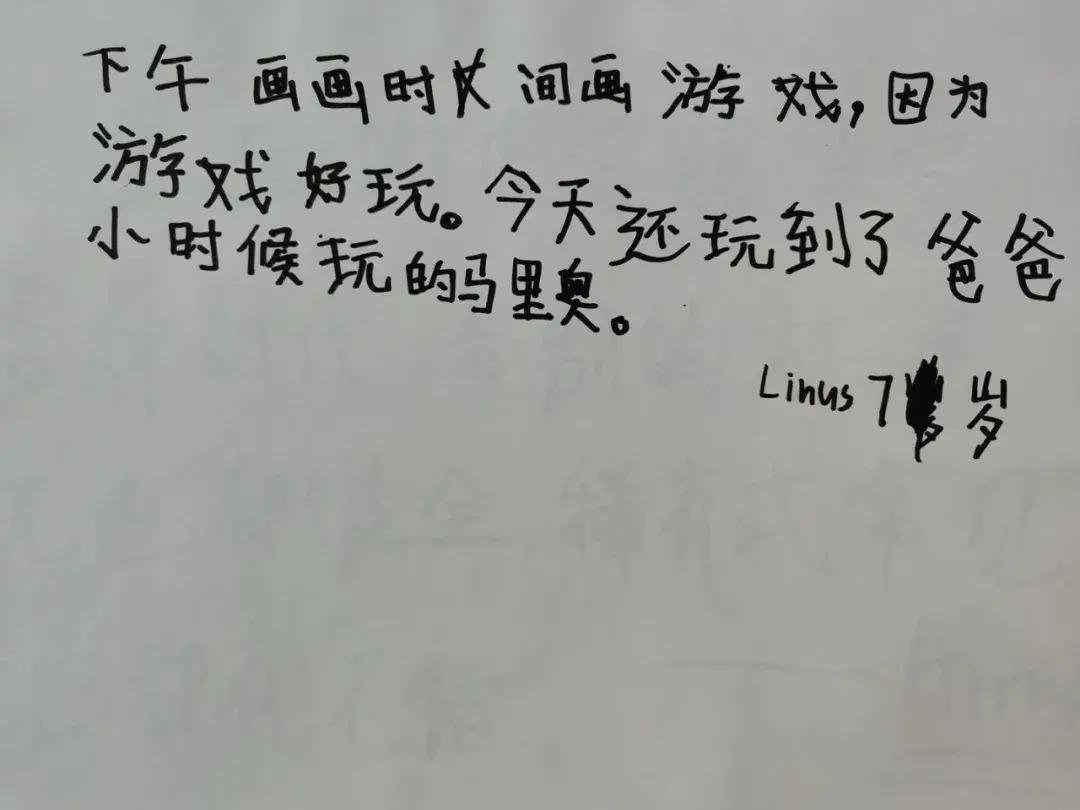 下午画画时间画游戏,因为
游戏好玩。今天还玩到了爸爸
小时候玩的马里奥。
Linus 7岁